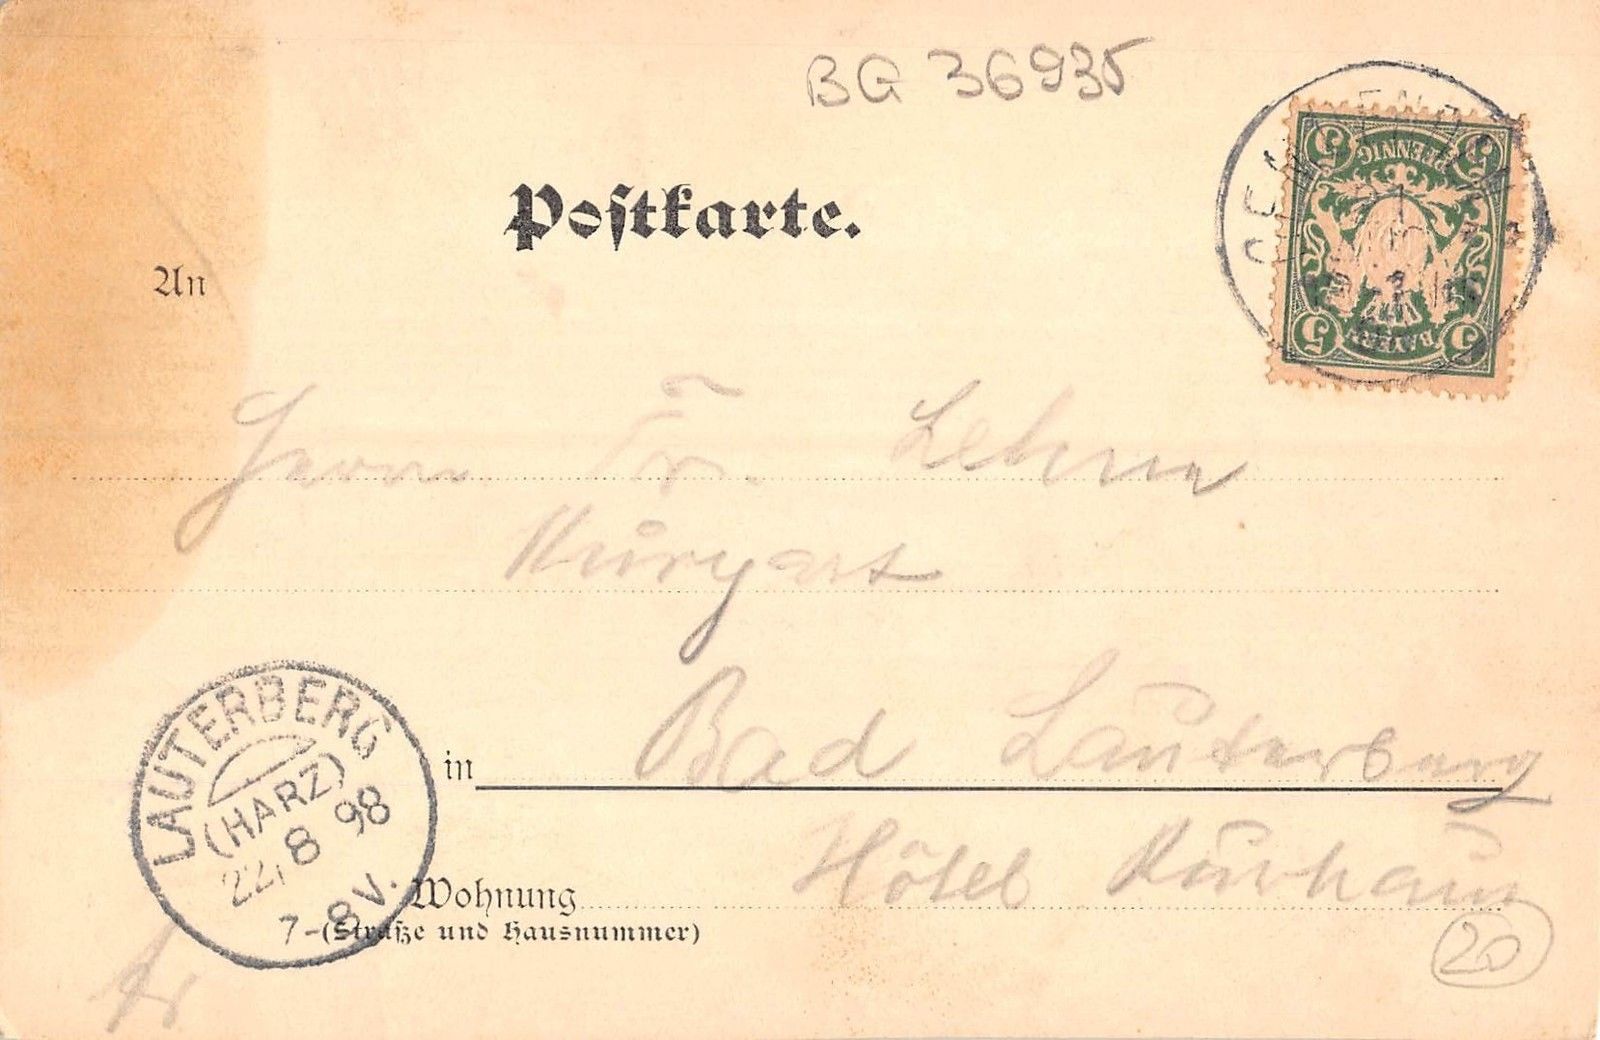 BG 36935
Postkarte.
5 PFENNIG 5
5 BAYERN 5
An
Herrn Fr. Lehne
Bad Lauterberg
in
Hôtel Kurhaus
Wohnung
(Straße und Hausnummer)
LAUTERBERG
(HARZ)
22 8 98
7-8V.
20